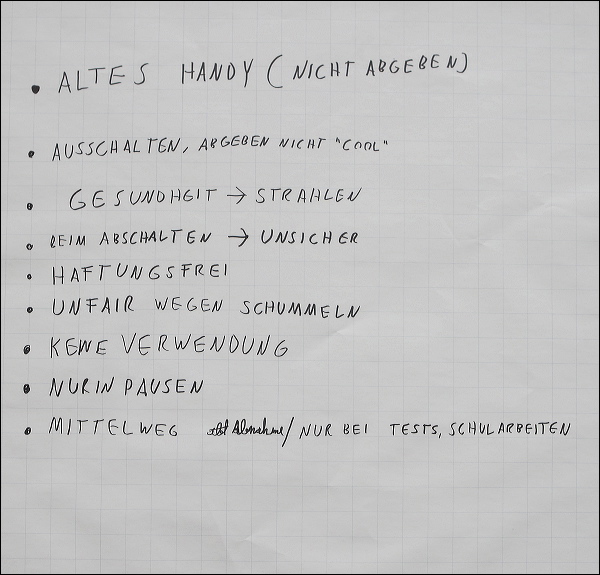 • ALTES HANDY (NICHT ABGEBEN)
• AUSSCHALTEN, ABGEBEN NICHT "COOL"
• GESUNDHEIT → STRAHLEN
• BEIM ABSCHALTEN → UNSICHER
• HAFTUNGSFREI
• UNFAIR WEGEN SCHUMMELN
• KEINE VERWENDUNG
• NUR IN PAUSEN
• MITTELWEG Abnahme / NUR BEI TESTS, SCHULARBEITEN